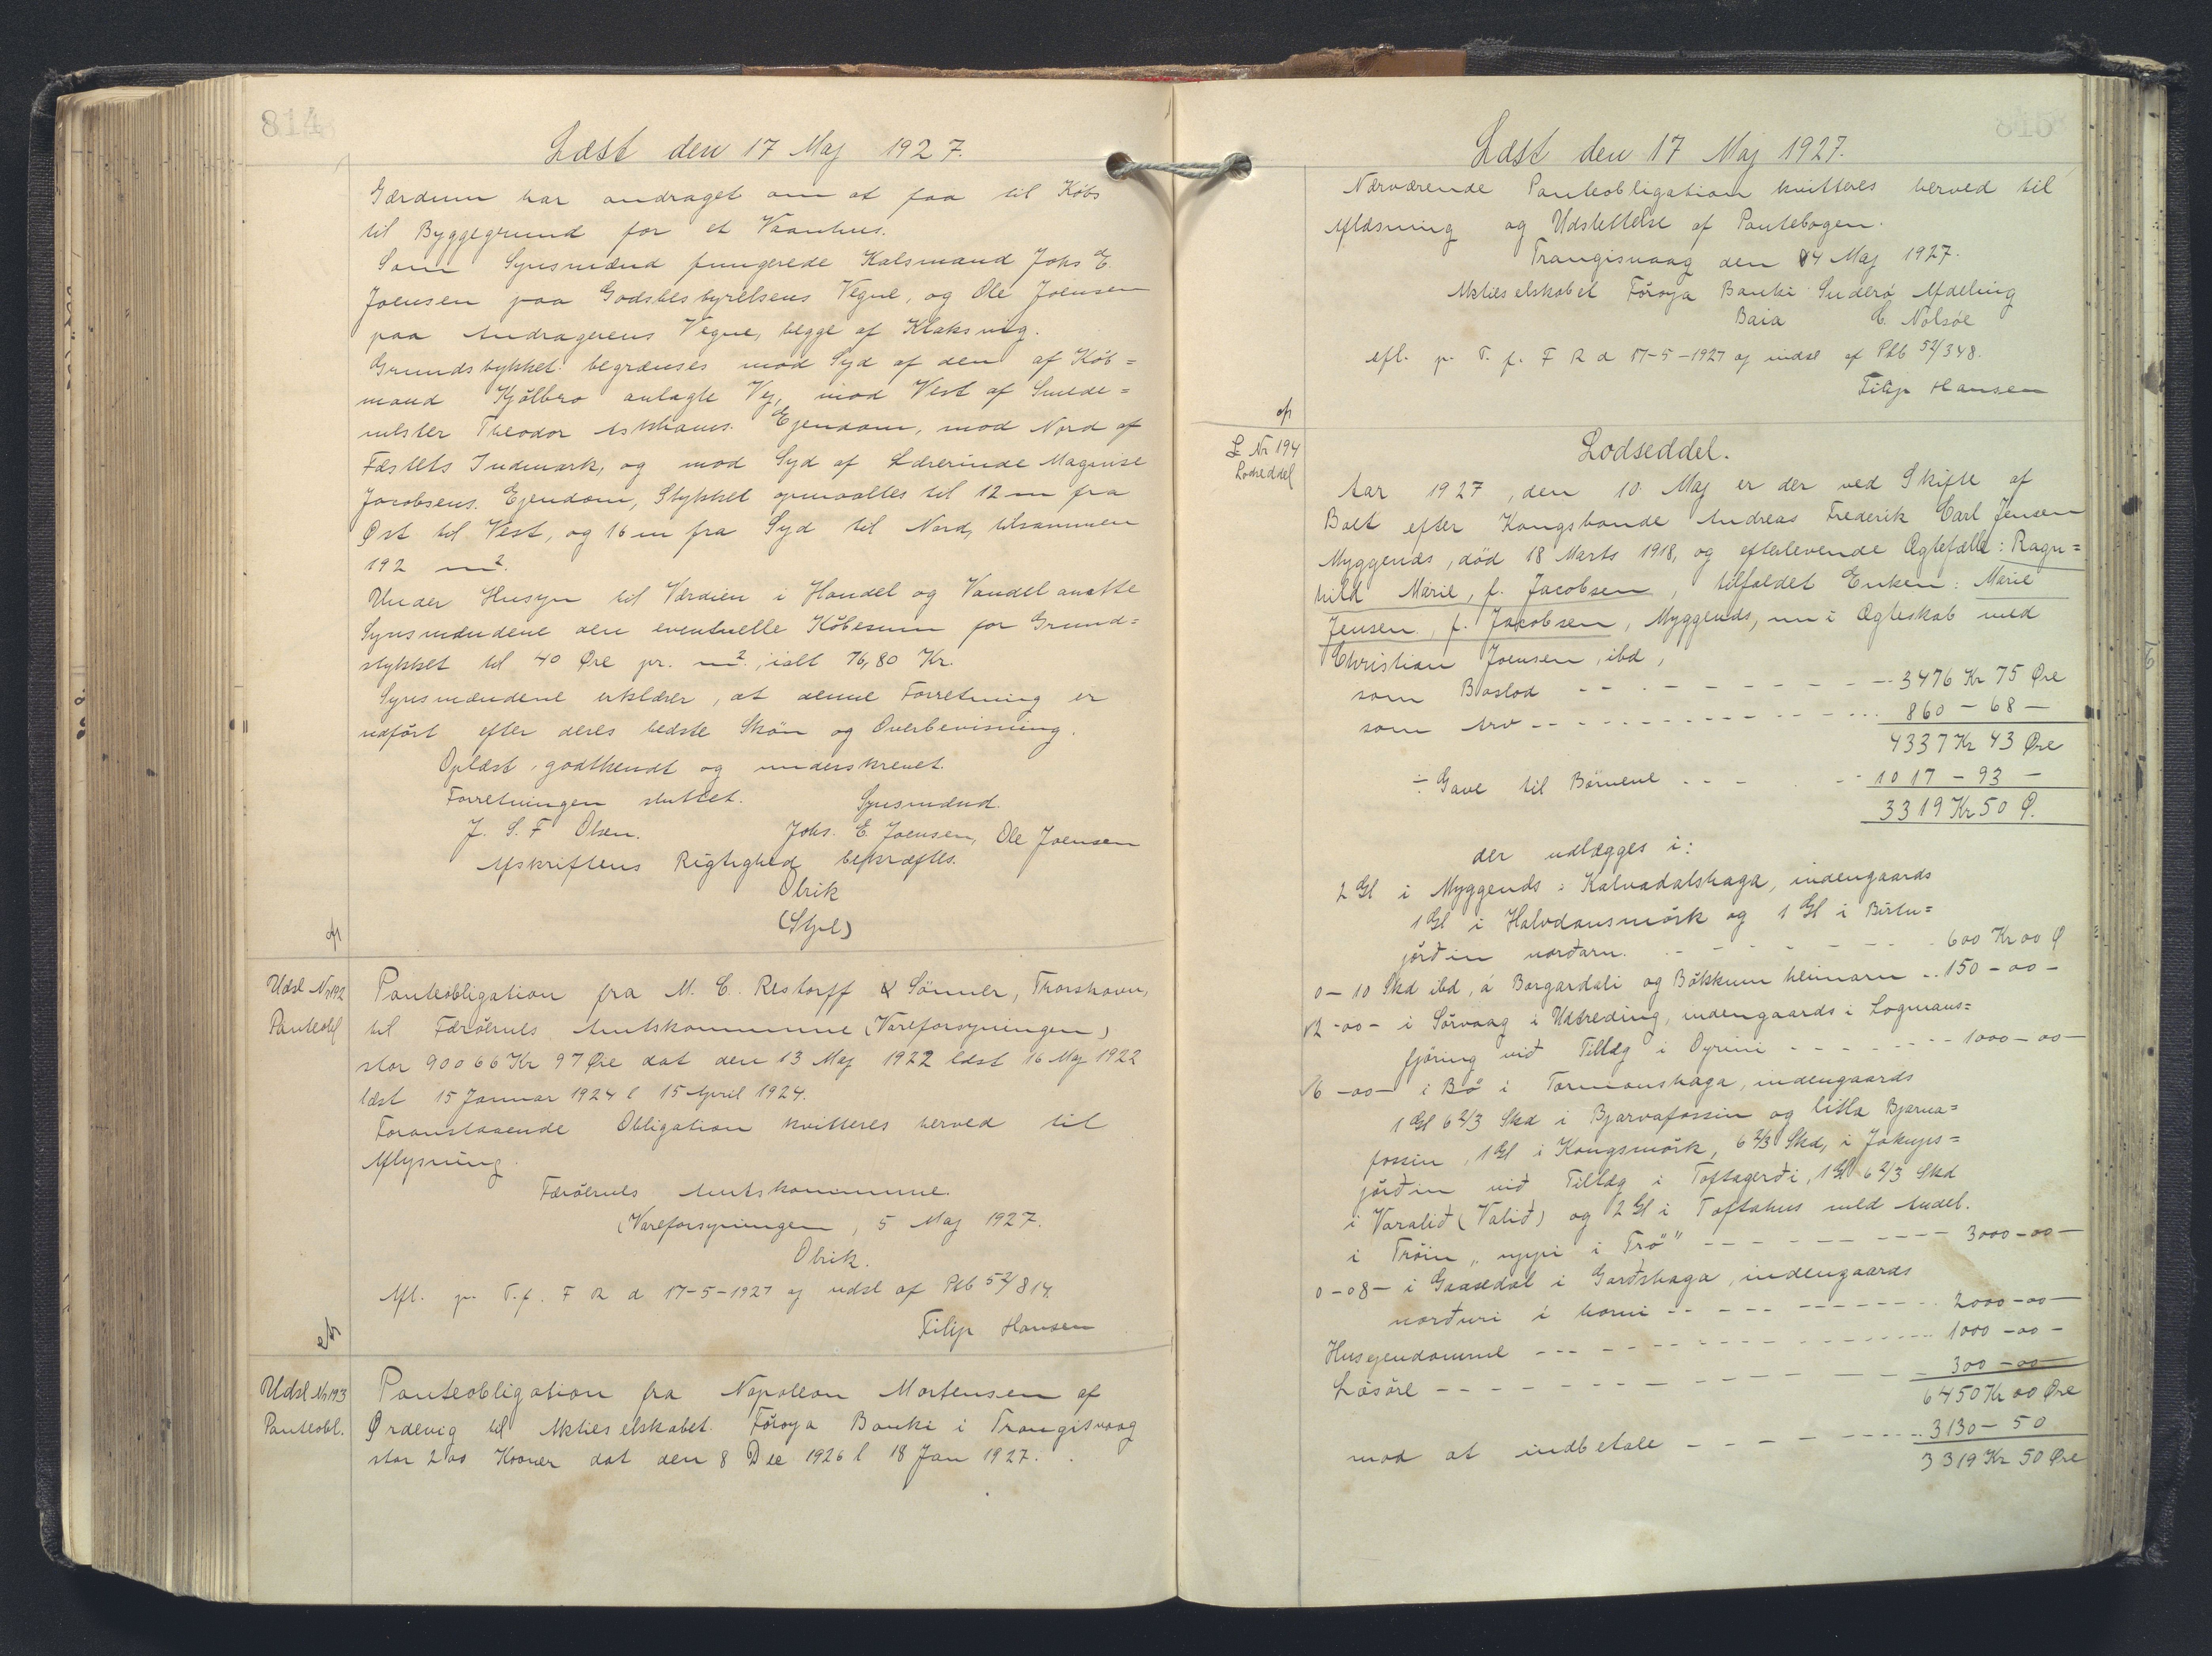 814
Læst den 17 Maj 1927.
Gærdum har andraget om at faa til Købs
til Byggegrund for et Vaanhus.
Som Synsmænd fungerede Kalsmand Johs E.
Joensen paa Godsbestyrelsens Vegne, og Ole Joensen
paa Andragerens Vegne, begge af Klaksvig.
Grundstykket begrænses mod Syd af den af Køb=
mand Kjølbro anlagte Vej, mod Vest af Smede=
mester Theodor Ejendom, mod Nord af
Fæstets Indmark, og mod Syd af Lærerinde Magnise
Jacobsens Ejendom, Stykket opmaaltes til 12 m fra
Øst til Vest, og 16 m fra Syd til Nord, tilsammen
192 m².
Under Hensyn til Værdien i Handel og Vandel ansatte
Synsmændene den eventuelle Købesum for Grund=
stykket til 40 Øre pr. m², ialt 76,80 Kr.
Synsmændene erklærer, at denne Forretning er
udført efter deres bedste Skøn og Overbevisning.
Oplæst, godkendt og underskrevet.
Forretningen sluttet. Synsmænd.
J. S. F Olsen. Johs. E Joensen, Ole Joensen
Afskriftens Rigtighed bekræftes.
Olrik
(Stpl)
Udsl Nr 192
Panteobl
Panteobligation fra M. C. Restorff & Sønner, Thorshavn,
til Færøernes Amtskommune (Vareforsyningen)
stor 90066 Kr 97 Øre dat den 13 Maj 1922 læst 16 Maj 1922
læst 15 Januar 1924 l 15 April 1924.
Foranstaaende Obligation kvitteres herved til
Aflysning.
Færøernes Amtskommune.
(Vareforsyningen, 5 Maj 1927.
Olrik.
Afl. p. T. f. F R d 17-5-1927 og udsl af Pkb 52/814.
Filip Hansen
Udsl Nr 193
Panteobl.
Panteobligation fra Napoleon Mortensen af
Ørdevig til Aktieselskabet Føroya Banki i Trangisvaag
stor 200 Kroner dat den 8 Dec 1926 l 18 Jan 1927.
Læst den 17 Maj 1927.
Nærværende Panteobligation kvitteres herved til
Aflæsning og Udslettelse af Pantebogen.
Trangisvaag den 14 Maj 1927.
Aktieselskabet Føroya Banki Suderø Afdeling
Baia C. Nolsøe
Afl. p. T. f. F R d 17-5-1927 og udsl af Pkb 52/348.
Filip Hansen
L Nr 194
Lodseddel
Lodseddel.
Aar 1927, den 10 Maj er der ved Skifte af
Boet efter Kongsbonde Andreas Frederik Carl Jensen
Myggenæs, død 18 Marts 1918, og efterlevende Ægtefælle: Ragn=
hild Marie, f. Jacobsen, tilfaldet Enken: Marie
Jensen, f. Jacobsen, Myggenæs, nu i Ægteskab med
Christian Joensen, ibd,
som Boslod - - - - - - - 3476 Kr 75 Øre
som Arv - - - - - - - 860 - 68 -
4337 Kr 43 Øre
÷ Gave til Børnene - - - - - 1017 - 93 -
3319 Kr 50 Ø.
der udlægges i:
2 Gl i Myggenæs: Kalvadalshaga, indengaards
1 Gl i Halvdansmörk og 1 Gl i Birtu=
jörðin norðaru. - - - - - - 600 Kr 00 Ø
0 - 10 Skd ibd, á Borgardali og Bökkum heimaru .. 150 - 00 -
12 - 00 - i Sørvaag i Udtreding, indengaards i Logmans=
fjöring við Tillæg i Oyrini - - - - - 1000 - 00 -
16 - 00 - i Bø i Tormanshaga, indengaards
1 Gl 6 2/3 Skd i Bjarvafossin og litla Bjarna=
fossin, 1 Gl i Kongsmörk, 6 2/3 Skd, i Jákups=
jörðin við Tillæg i Toftagerði, 1 Gl 6 2/3 Skd
i Varalið (Valið) og 2 Gl i Toftahus med Andel.
i Tröin "uppi i Trö" - - - - - - 3000 - 00 -
0 - 08 - i Gaasedal i Garðshaga, indengaards
norðuri i horni - - - - - - - 2000 - 00 -
Husejendomme - - - - - - - 1000 - 00 -
Løsøre - - - - - - - 300 - 00 -
6450 Kr 00 Øre
mod at indbetale - - - - - - 3130 - 50
3319 Kr 50 Øre